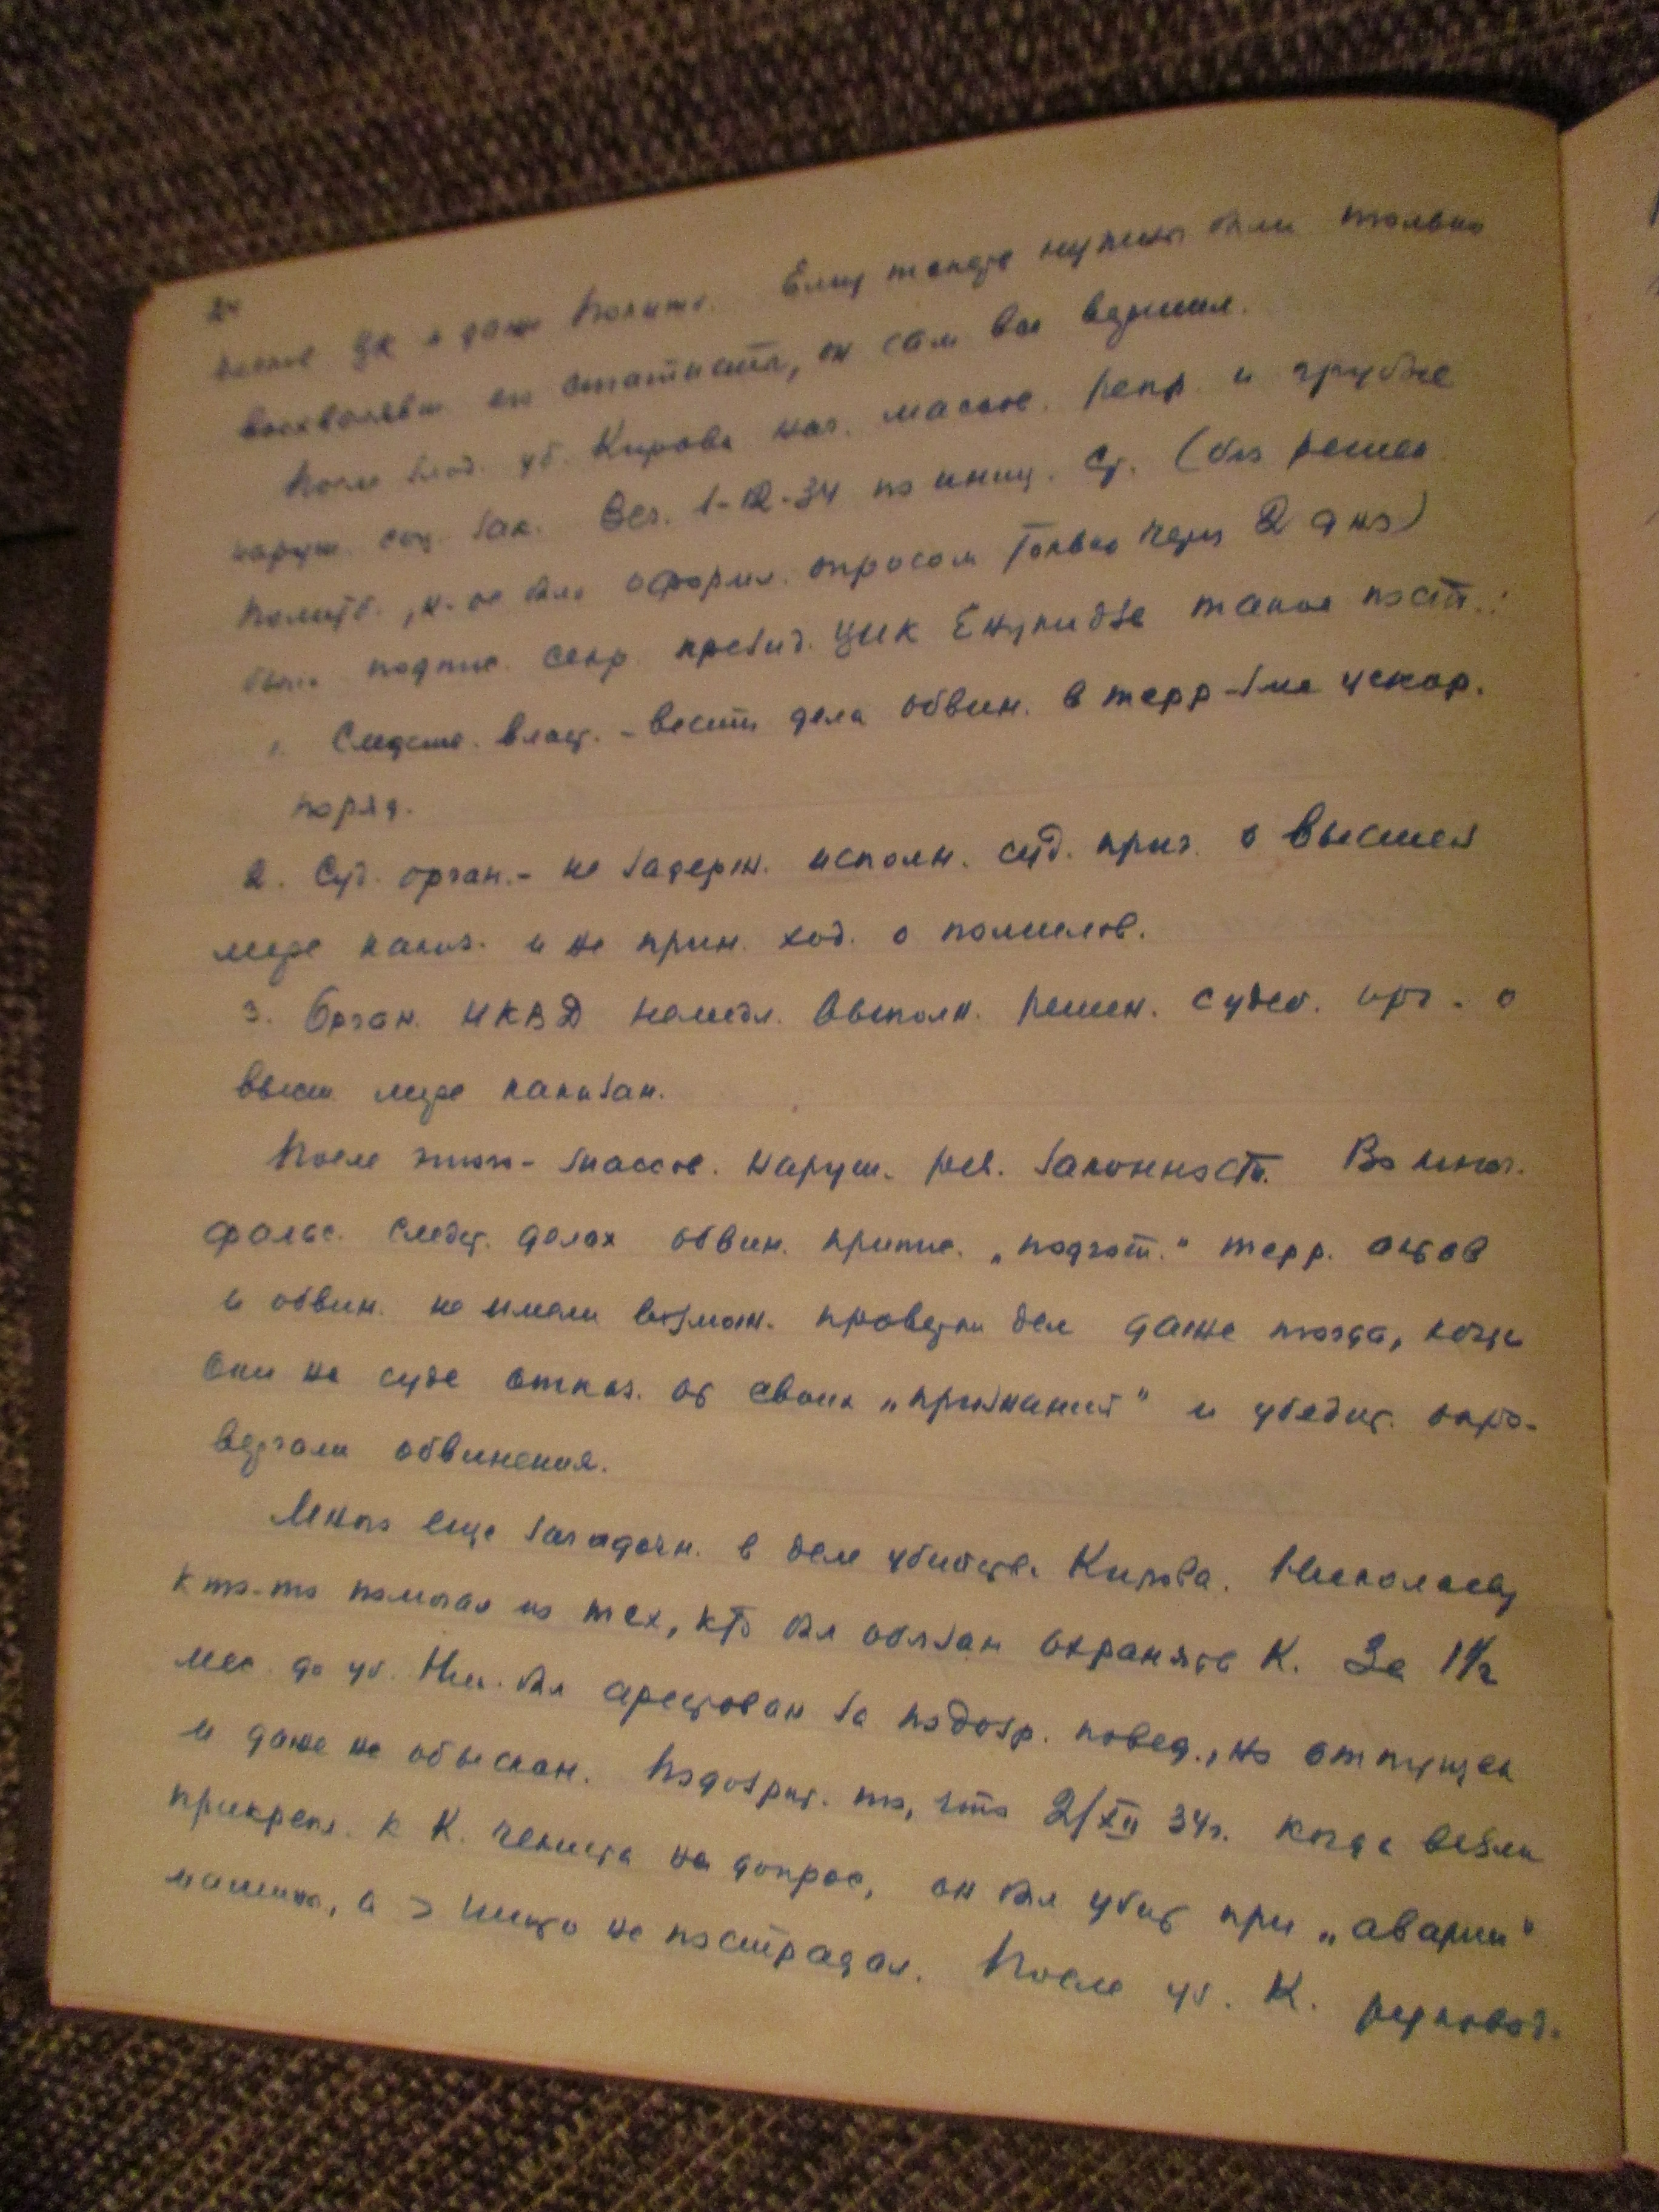 ЦК и даже Политб. Ему теперь нужны были только
восхвалявш. его статисты, он сам все вершил.
После злод. уб. Кирова нач. массов. репр. и грубые
наруш. соц. зак. Веч. 1-12-34 по иниц. Ст. (без решен.
Политб., к-ое было оформл. опросом только через 2 дня)
было подпис. секр. презид. ЦИК Енукидзе такое пост.:
1. Следств. власт. - вести дела обвин. в терр-зме ускор.
поряд.
2. Суд. орган. - не задерж. исполн. суд. приг. о высшей
мере наказ. и не прин. ход. о помилов.
3. Орган. НКВД немедл. выполн. решен. судеб. орг. о
высш мере наказан.
После этого - массов. наруш. рев. законности. Во мног.
фальс. следст. делах обвин. припис. „подгот." терр. актов
и обвин. не имели возмож. проверки дел даже тогда, когда
они на суде отказ. от своих „признаний" и убедит. опро-
вергали обвинения.
Много еще загадочн. в деле убийства Кирова. Николаеву
кто-то помогал из тех, кто был обязан охранять К. За 1 1/2
мес. до уб. Ник. был арестован за подозр. повед., но отпущен
и даже не обыскан. Подозрит. то, что 2/XII 34г. когда везли
прикрепл. к К. чекиста на допрос, он был убит при „аварии"
машины, а никто не пострадал. После уб. К. руковод.